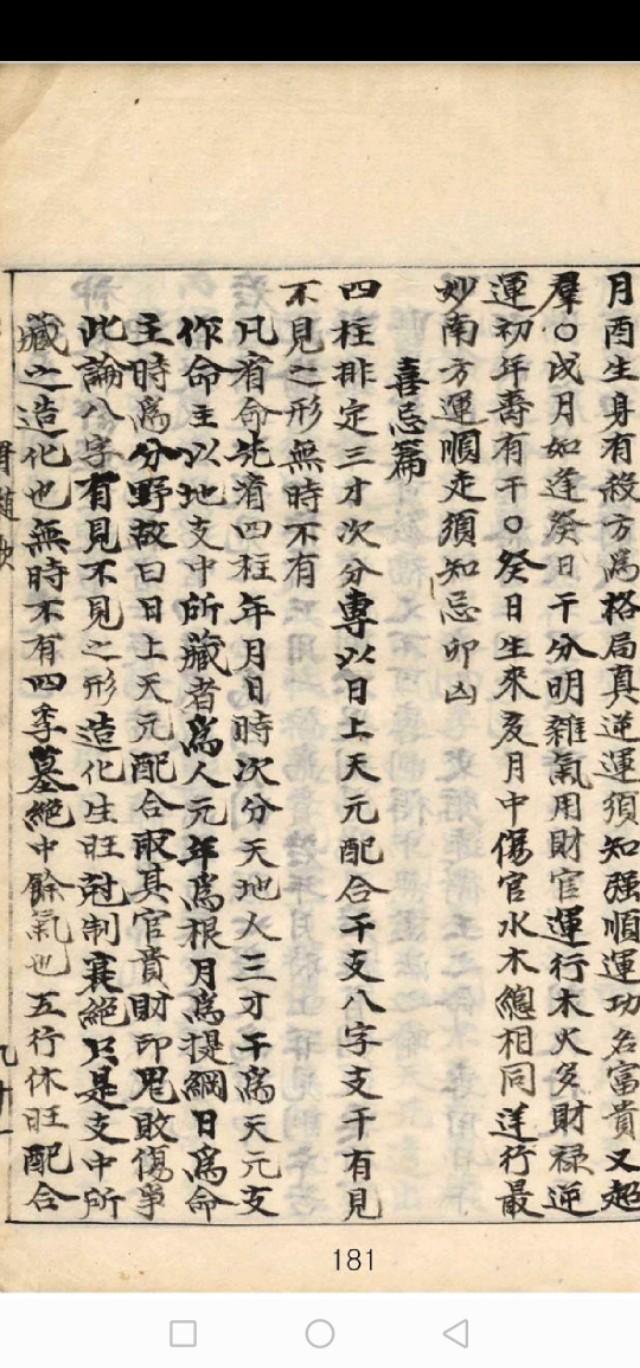 月酉生身有殺方爲格局真逆運須知强順運功名富貴又超
羣○戌月如逢癸日干分明雜氣用財官運行木火多財禄逆
運初年壽有干○癸日生來亥月中傷官水木總相同逆行最
妙南方運順走須知忌卯凶
喜忌篇
四柱排定三才次分專以日上天元配合干支八字支干有見
不見之形無時不有
凡看命先湏四柱年月日時次分天地人三才干爲天元支
作命主以地支中所藏者爲人元年爲根月爲提綱日爲命
主時爲分野故曰日上天元配合取其官貴財印鬼敗傷爭
此論八字有見不見之形造化生旺尅制衰絕只是支中所
藏之造化也無時不有四季墓絕中餘氣也五行休旺配合
181